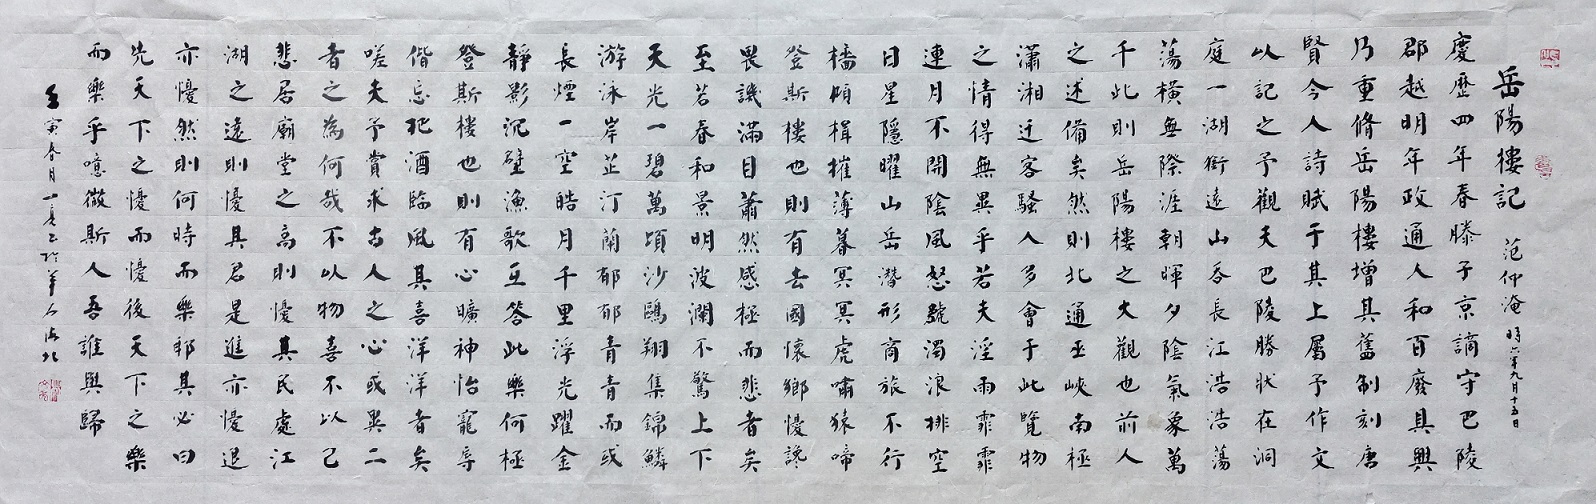 岳陽樓記 范仲淹 時六年九月十五日
慶歷四年春滕子京謫守巴陵
郡越明年政通人和百廢具興
乃重脩岳陽樓增其舊制刻唐
賢今人詩賦于其上屬予作文
以記之予觀夫巴陵勝狀在洞
庭一湖銜遠山吞長江浩浩蕩
蕩橫無際涯朝暉夕陰氣象萬
千此則岳陽樓之大觀也前人
之述備矣然則北通巫峽南極
瀟湘遷客騷人多會于此覽物
之情得無異乎若夫淫雨霏霏
連月不開陰風怒號濁浪排空
日星隱曜山岳潛形商旅不行
檣傾楫摧薄暮冥冥虎嘯猿啼
登斯樓也則有去國懷鄉懮讒
畏譏滿目蕭然感極而悲者矣
至若春和景明波瀾不驚上下
天光一碧萬頃沙鷗翔集錦鱗
游泳岸芷汀蘭郁郁青青而或
長煙一空皓月千里浮光躍金
靜影沉璧漁歌互答此樂何極
登斯樓也則有心曠神怡寵辱
偕忘把酒臨風其喜洋洋者矣
嗟夫予嘗求古人之心或異二
者之為何哉不以物喜不以己
悲居廟堂之高則懮其民處江
湖之遠則懮其君是進亦懮退
亦懮然則何時而樂耶其必曰
先天下之懮而懮後天下之樂
而樂乎噫微斯人吾誰與歸
壬寅春月